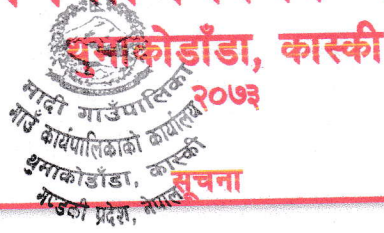 थुमाकोडाँडा, कास्की
२०७३
मादी गाउँपालिका
गाउँ कार्यपालिकाको कार्यालय
थुमाकोडाँडा, कास्की
गण्डकी प्रदेश, नेपाल
सूचना